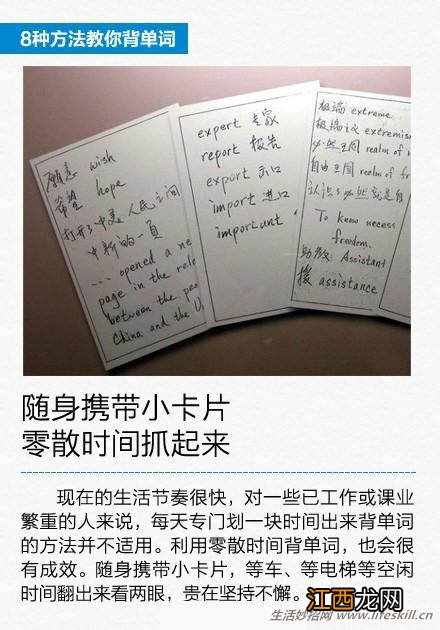 8种方法教你背单词
愿意 wish
希望 hope
打开了中美人民之间
中新的一頁
... opened a ne
page in the rele
between the peo
China and the U
expert 专家
report 报告
export 出口
import 进口
important
极端 extreme
极端主义 extremis
必然王国 realm of n
自由王国 realm of f
认识了必然就是自
To know necess
freedom.
助教 Assistant
援 assistance
随身携带小卡片
零散时间抓起来
现在的生活节奏很快，对一些已工作或课业
繁重的人来说，每天专门划一块时间出来背单词
的方法并不适用。利用零散时间背单词，也会很
有成效。随身携带小卡片，等车、等电梯等空闲
时间翻出来看两眼，贵在坚持不懈。
生活妙招网 www.lifeskill.cn
江西龙网